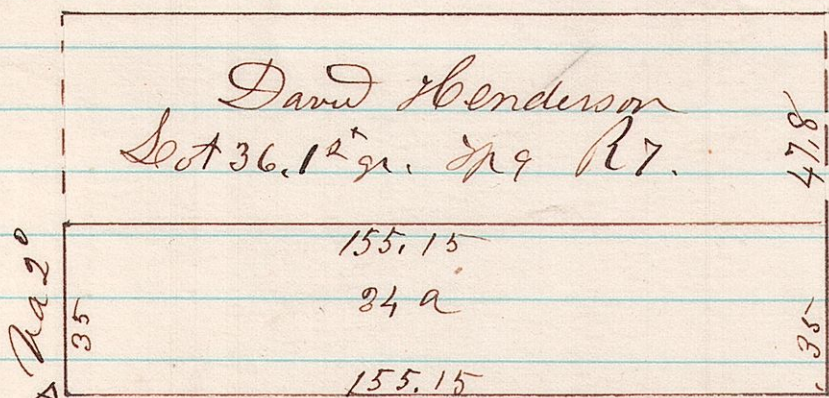 David Henderson
Lot 36. 1st gr. Tp 9 R 7.
47,8
155.15
34 a
35
35
155.15
Va 2°